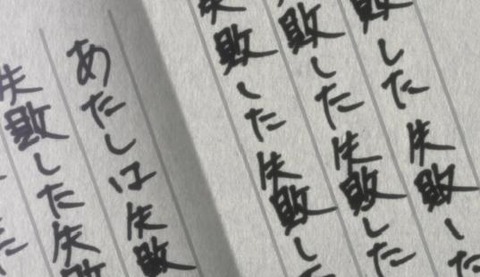 敗した失敗した
敗した失敗した
失敗した失敗し
あたしは失敗
失敗した失敗